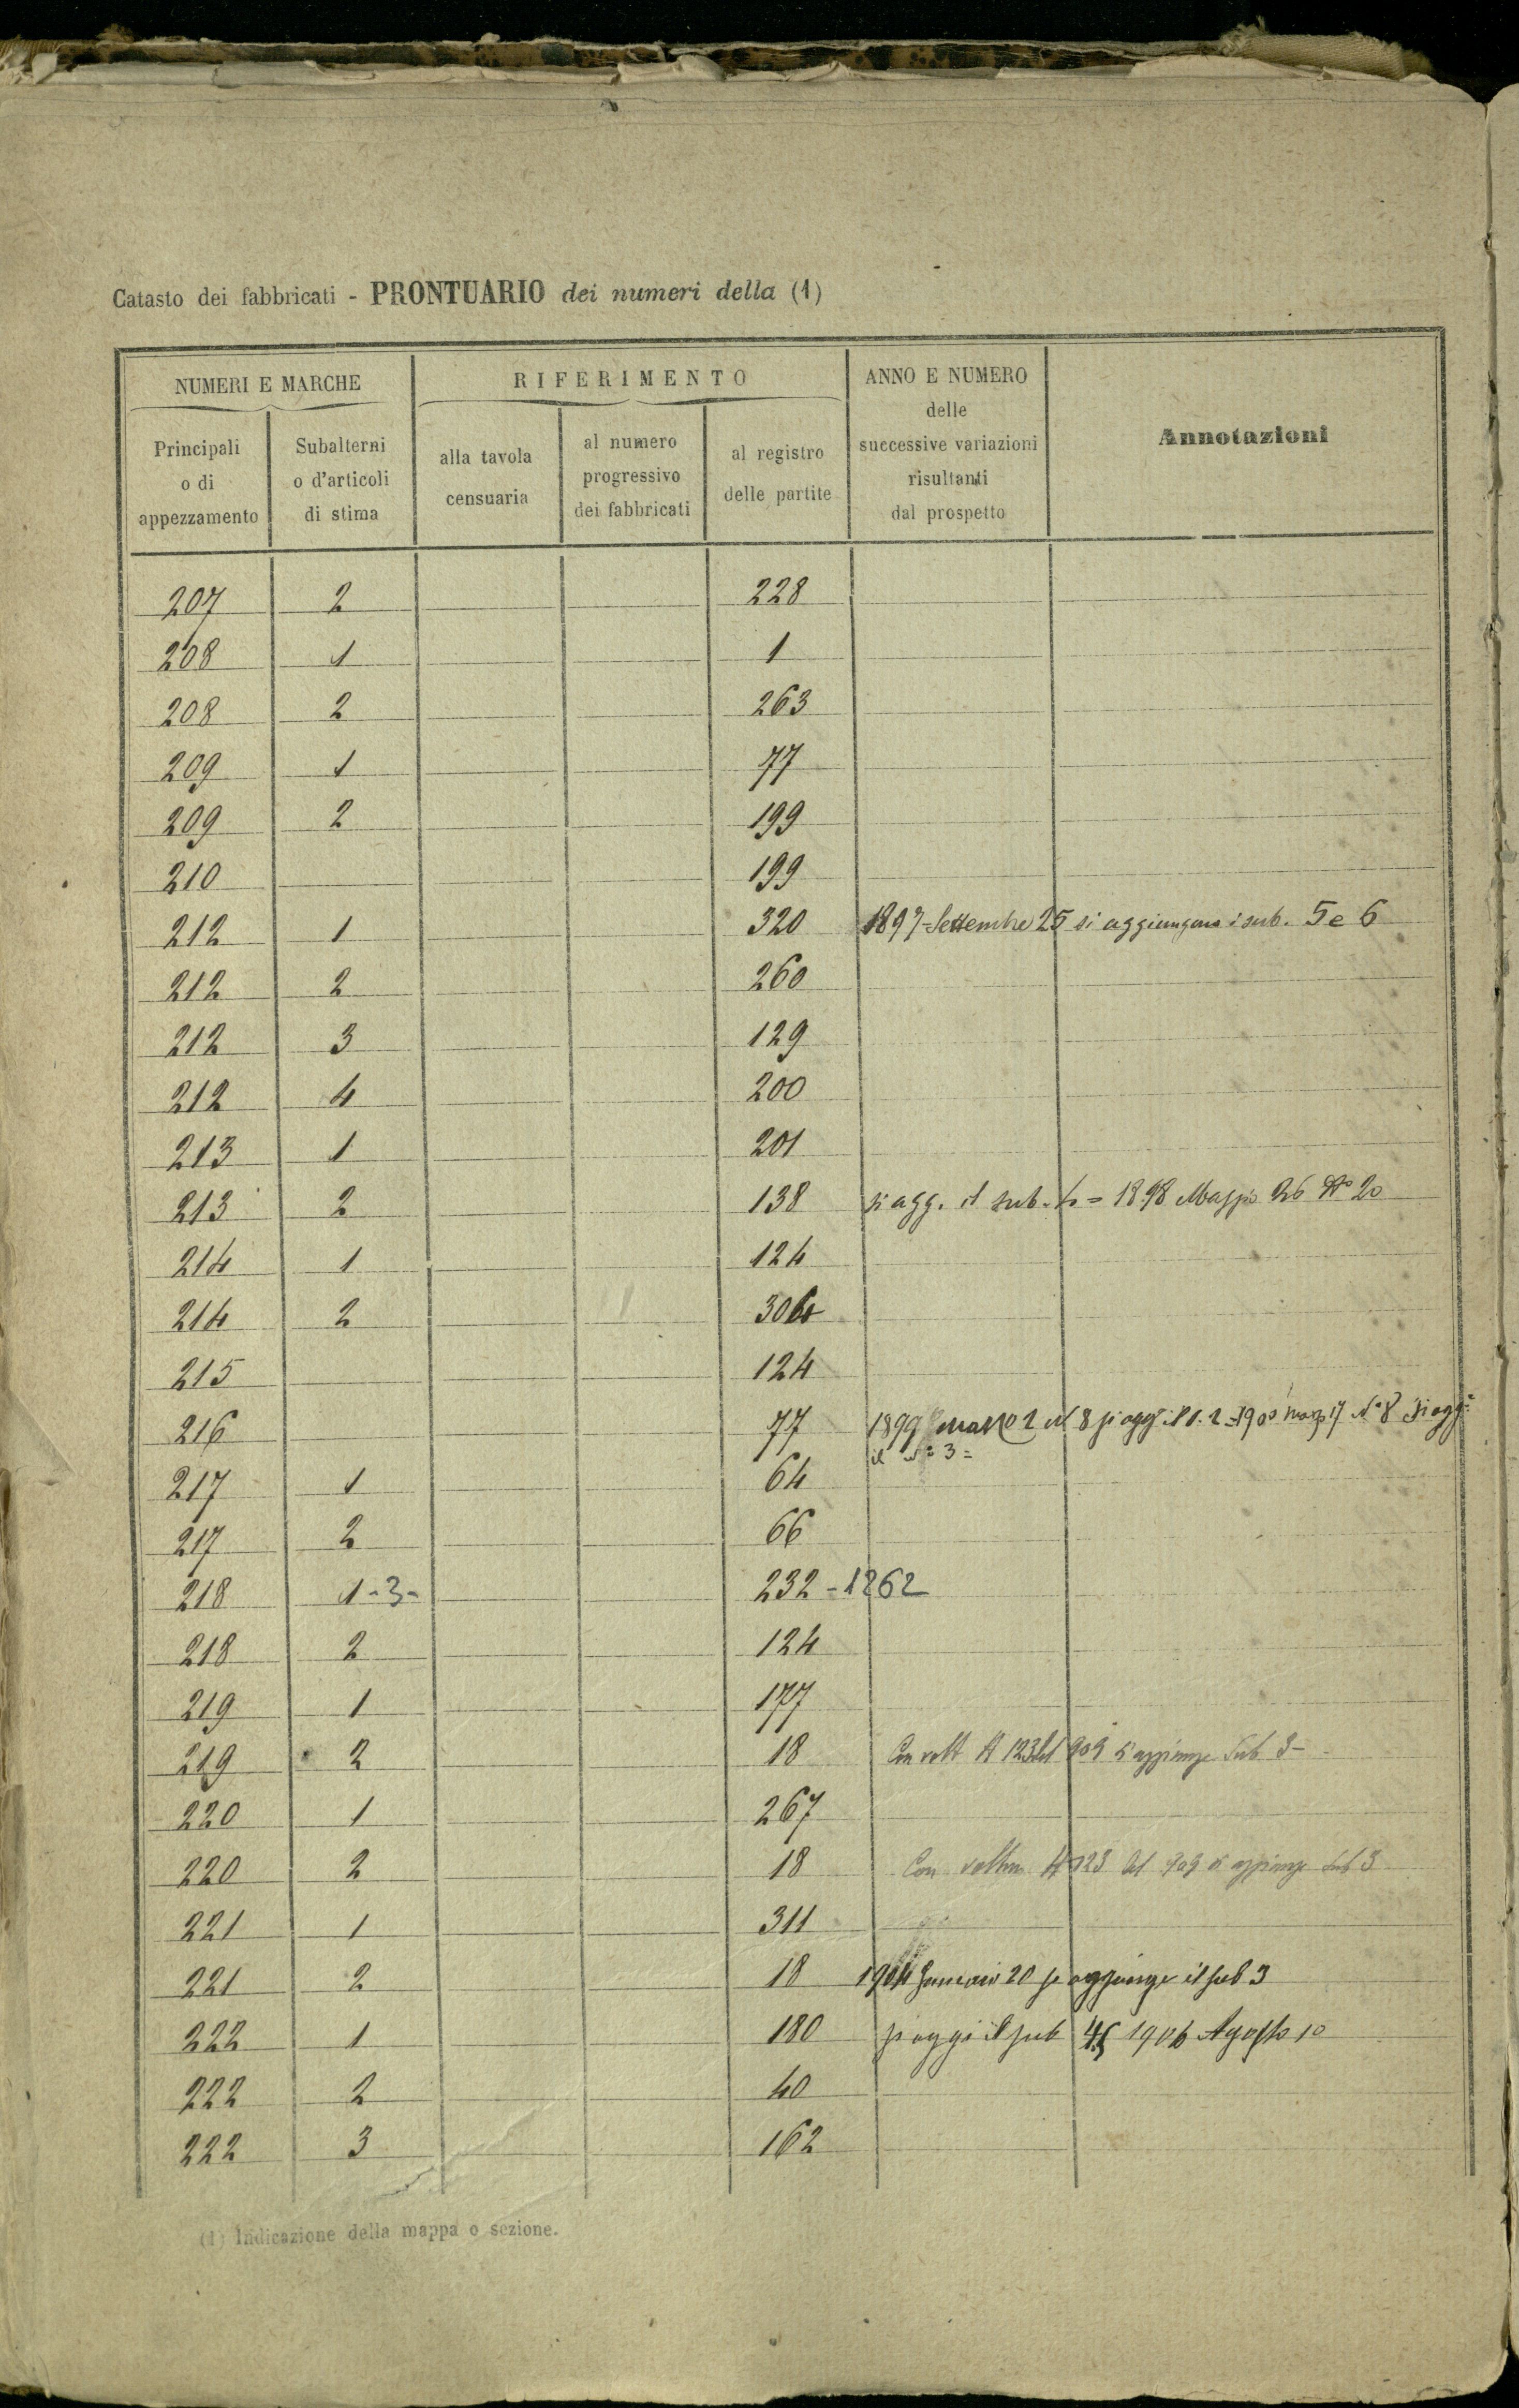 Catasto dei fabbricati - PRONTUARIO dei numeri della (1)
NUMERI E MARCHE
Principali o di appezzamento
Subalterni o d'articoli di stima
RIFERIMENTO
alla tavola censuaria
al numero progressivo dei fabbricati
al registro delle partite
ANNO E NUMERO delle successive variazioni risultanti dal prospetto
Annotazioni
207 2 228
208 1 1
208 2 263
209 1 77
209 2 199
210 199
212 1 320 1897 Settembre 25 si aggiungono i sub. 5 e 6
212 2 260
212 3 129
212 4 200
213 1 201
213 2 138 si agg. il sub. = 1898 Maggio 26 N° 20
214 1 124
214 2
215 124
216 77 1899 Marzo 2 N 8 si agg il s. 2 = 1900 marzo 17 N° 8 si agg:
il N° 3 =
217 1 64
217 2 66
218 1-3- 232 - 1262
218 2 124
219 1 177
219 2 18 Con 123 del 909 si aggiunge Sub 3-
220 1 267
220 2 18 Con 123 del 909 si aggiunge sub 3
221 1 311
221 2 18 1904 Gennaio 20 si aggiunge il sub 3
222 1 180 si aggi il sub 1906 Agosto 10
222 2 40
222 3 162
(1) Indicazione della mappa o sezione.